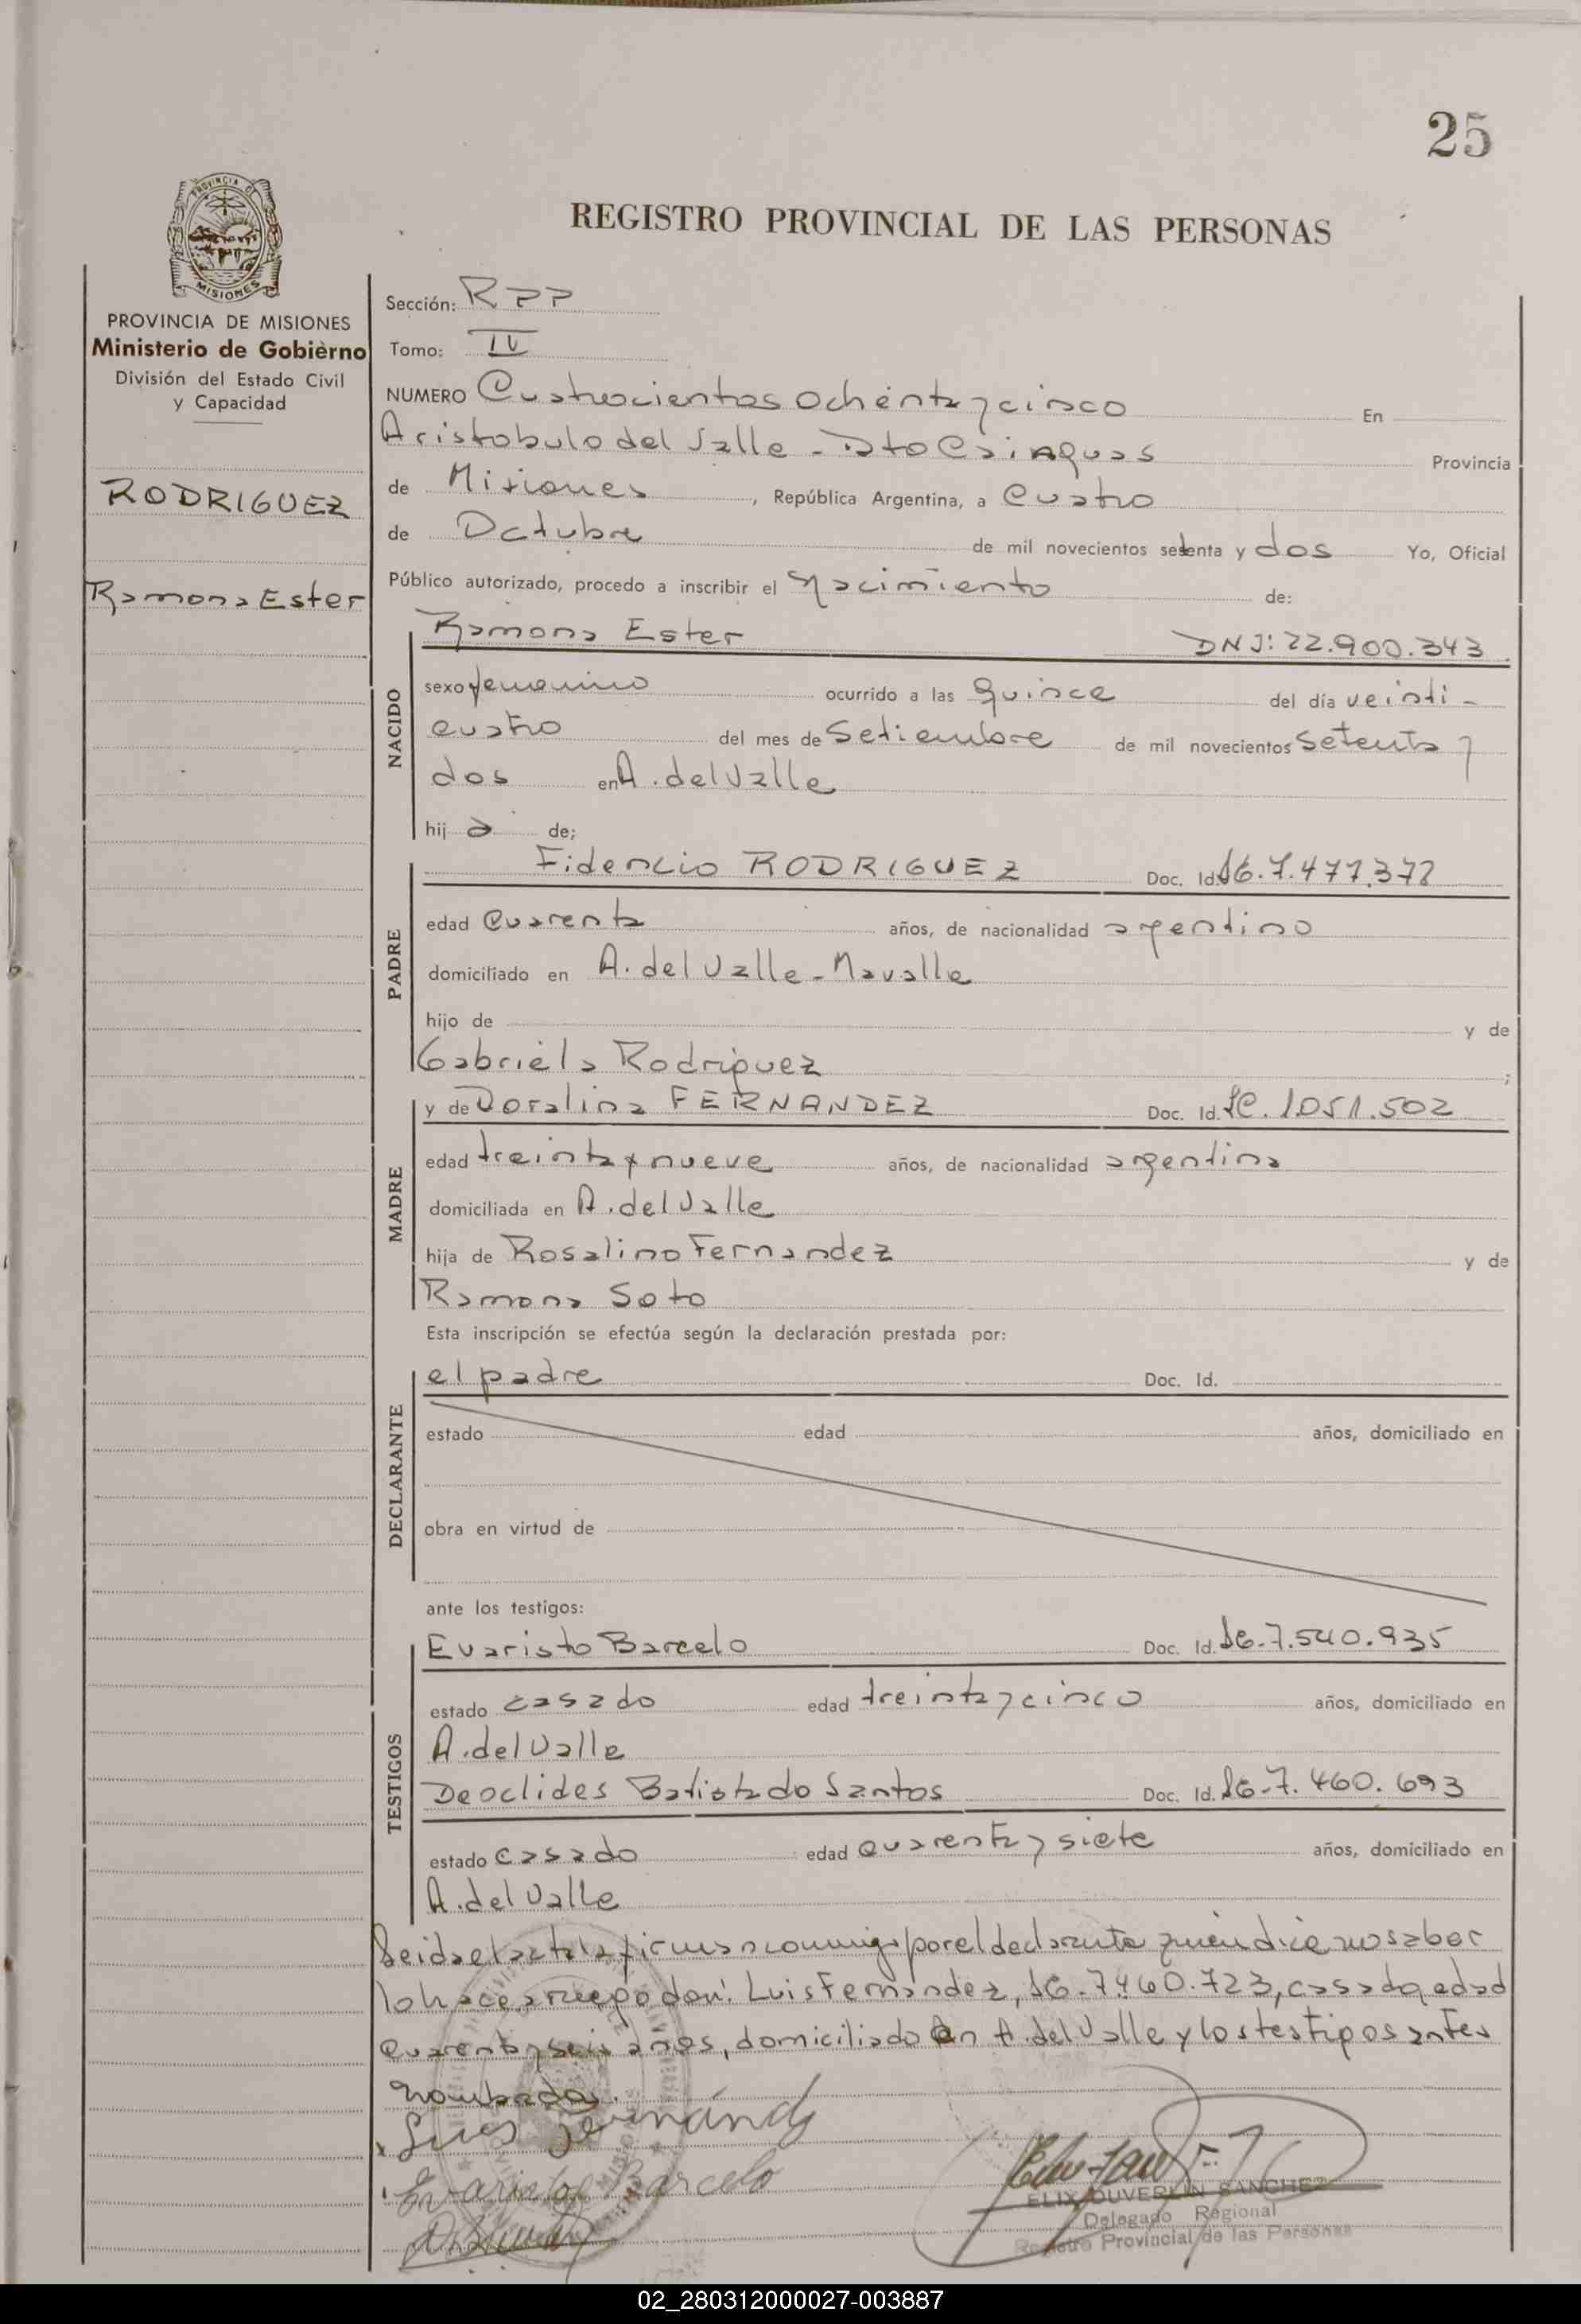 25
REGISTRO PROVINCIAL DE LAS PERSONAS
PROVINCIA DE
MISIONES
PROVINCIA DE MISIONES
Ministerio de Gobierno
División del Estado Civil
y Capacidad
RODRIGUEZ
Ramona Ester
Sección: RPP
Tomo: IV
NUMERO Cuatrocientos ochenta y cinco En
Aristobulo del Valle - Dto Cainguas Provincia
de Misiones, República Argentina, a cuatro
de Octubre de mil novecientos setenta y dos Yo, Oficial
Público autorizado, procedo a inscribir el Nacimiento de:
NACIDO
Ramona Ester DNI: 22.900.343
sexo femenino ocurrido a las quince del día veinti-
cuatro del mes de Setiembre de mil novecientos setenta y
dos en A. del Valle
hij a de;
PADRE
Fidencio RODRIGUEZ Doc. Id. 7.477.372
edad cuarenta años, de nacionalidad argentino
domiciliado en A. del Valle - Mavalle
hijo de y de
Gabriela Rodriguez ;
MADRE
y de Doralina FERNANDEZ Doc. Id. LC. 1.051.502
edad treinta y nueve años, de nacionalidad argentina
domiciliada en A. del Valle
hija de Rosalino Fernandez y de
Ramona Soto
Esta inscripción se efectúa según la declaración prestada por:
DECLARANTE
el padre Doc. Id.
estado edad años, domiciliado en
obra en virtud de
ante los testigos:
TESTIGOS
Evaristo Barcelo Doc. Id. 7.540.935
estado casado edad treinta y cinco años, domiciliado en
A. del Valle
Deoclides Batista do Santos Doc. Id. 7.460.693
estado casado edad cuarenta y siete años, domiciliado en
A. del Valle
Leida el acta la firman conmigo por el declarante quien dice no saber
lo hace a ruego don: Luis Fernandez, 7.460.723, casado, edad
cuarenta y seis años, domiciliado en A. del Valle y los testigos antes
nombrados.
Luis Fernández
Evaristo Barcelo
ELIX DUVERLIN SANCHEZ
Delegado Regional
Registro Provincial de las Personas
02_280312000027-003887